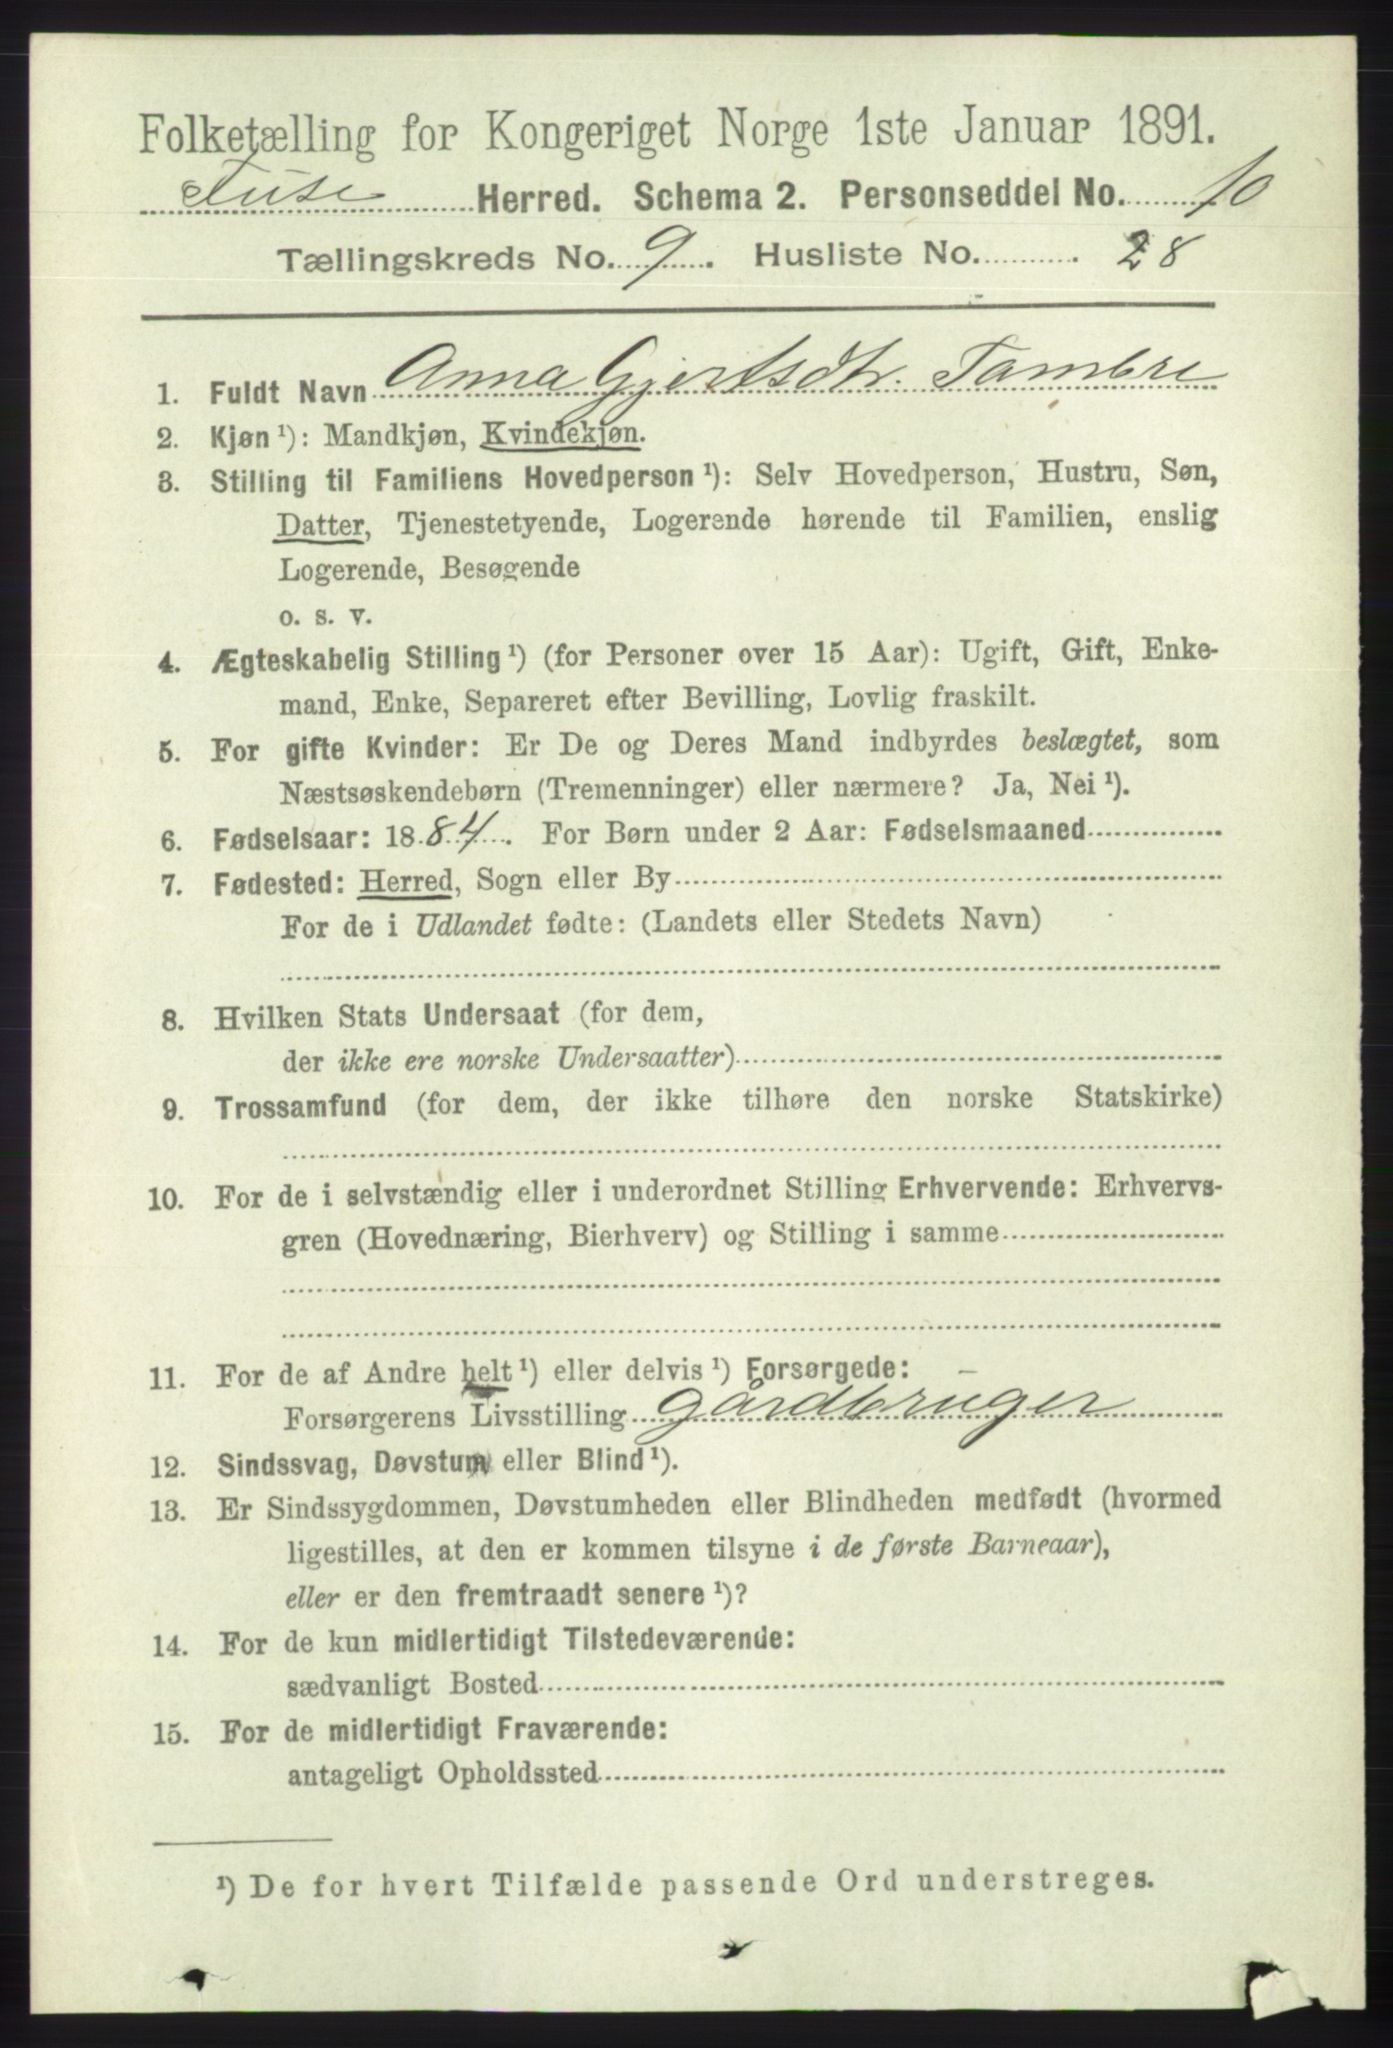 Folketælling for Kongeriget Norge 1ste Januar 1891.
Fuse Herred. Schema 2. Personseddel No. 10
Tællingskreds No. 9. Husliste No. 28
1. Fuldt Navn Anna Gjertsdtr. Tambre
2. Kjøn ¹): Mandkjøn, Kvindekjøn.
3. Stilling til Familiens Hovedperson ¹): Selv Hovedperson, Hustru, Søn,
Datter, Tjenestetyende, Logerende hørende til Familien, enslig
Logerende, Besøgende
o. s. v.
4. Ægteskabelig Stilling ¹) (for Personer over 15 Aar): Ugift, Gift, Enke-
mand, Enke, Separeret efter Bevilling, Lovlig fraskilt.
5. For gifte Kvinder: Er De og Deres Mand indbyrdes beslægtet, som
Næstsøskendebørn (Tremenninger) eller nærmere? Ja, Nei ¹).
6. Fødselsaar: 1884. For Børn under 2 Aar: Fødselsmaaned
7. Fødested: Herred, Sogn eller By
For de i Udlandet fødte: (Landets eller Stedets Navn)
8. Hvilken Stats Undersaat (for dem,
der ikke ere norske Undersaatter)
9. Trossamfund (for dem, der ikke tilhøre den norske Statskirke)
10. For de i selvstændig eller i underordnet Stilling Erhvervende: Erhvervs-
gren (Hovednæring, Bierhverv) og Stilling i samme
11. For de af Andre helt ¹) eller delvis ¹) Forsørgede:
Forsørgerens Livsstilling gårdbruger
12. Sindssvag, Døvstum eller Blind ¹).
13. Er Sindssygdommen, Døvstumheden eller Blindheden medfødt (hvormed
ligestilles, at den er kommen tilsyne i de første Barneaar),
eller er den fremtraadt senere ¹)?
14. For de kun midlertidigt Tilstedeværende:
sædvanligt Bosted
15. For de midlertidigt Fraværende:
antageligt Opholdssted
¹) De for hvert Tilfælde passende Ord understreges.